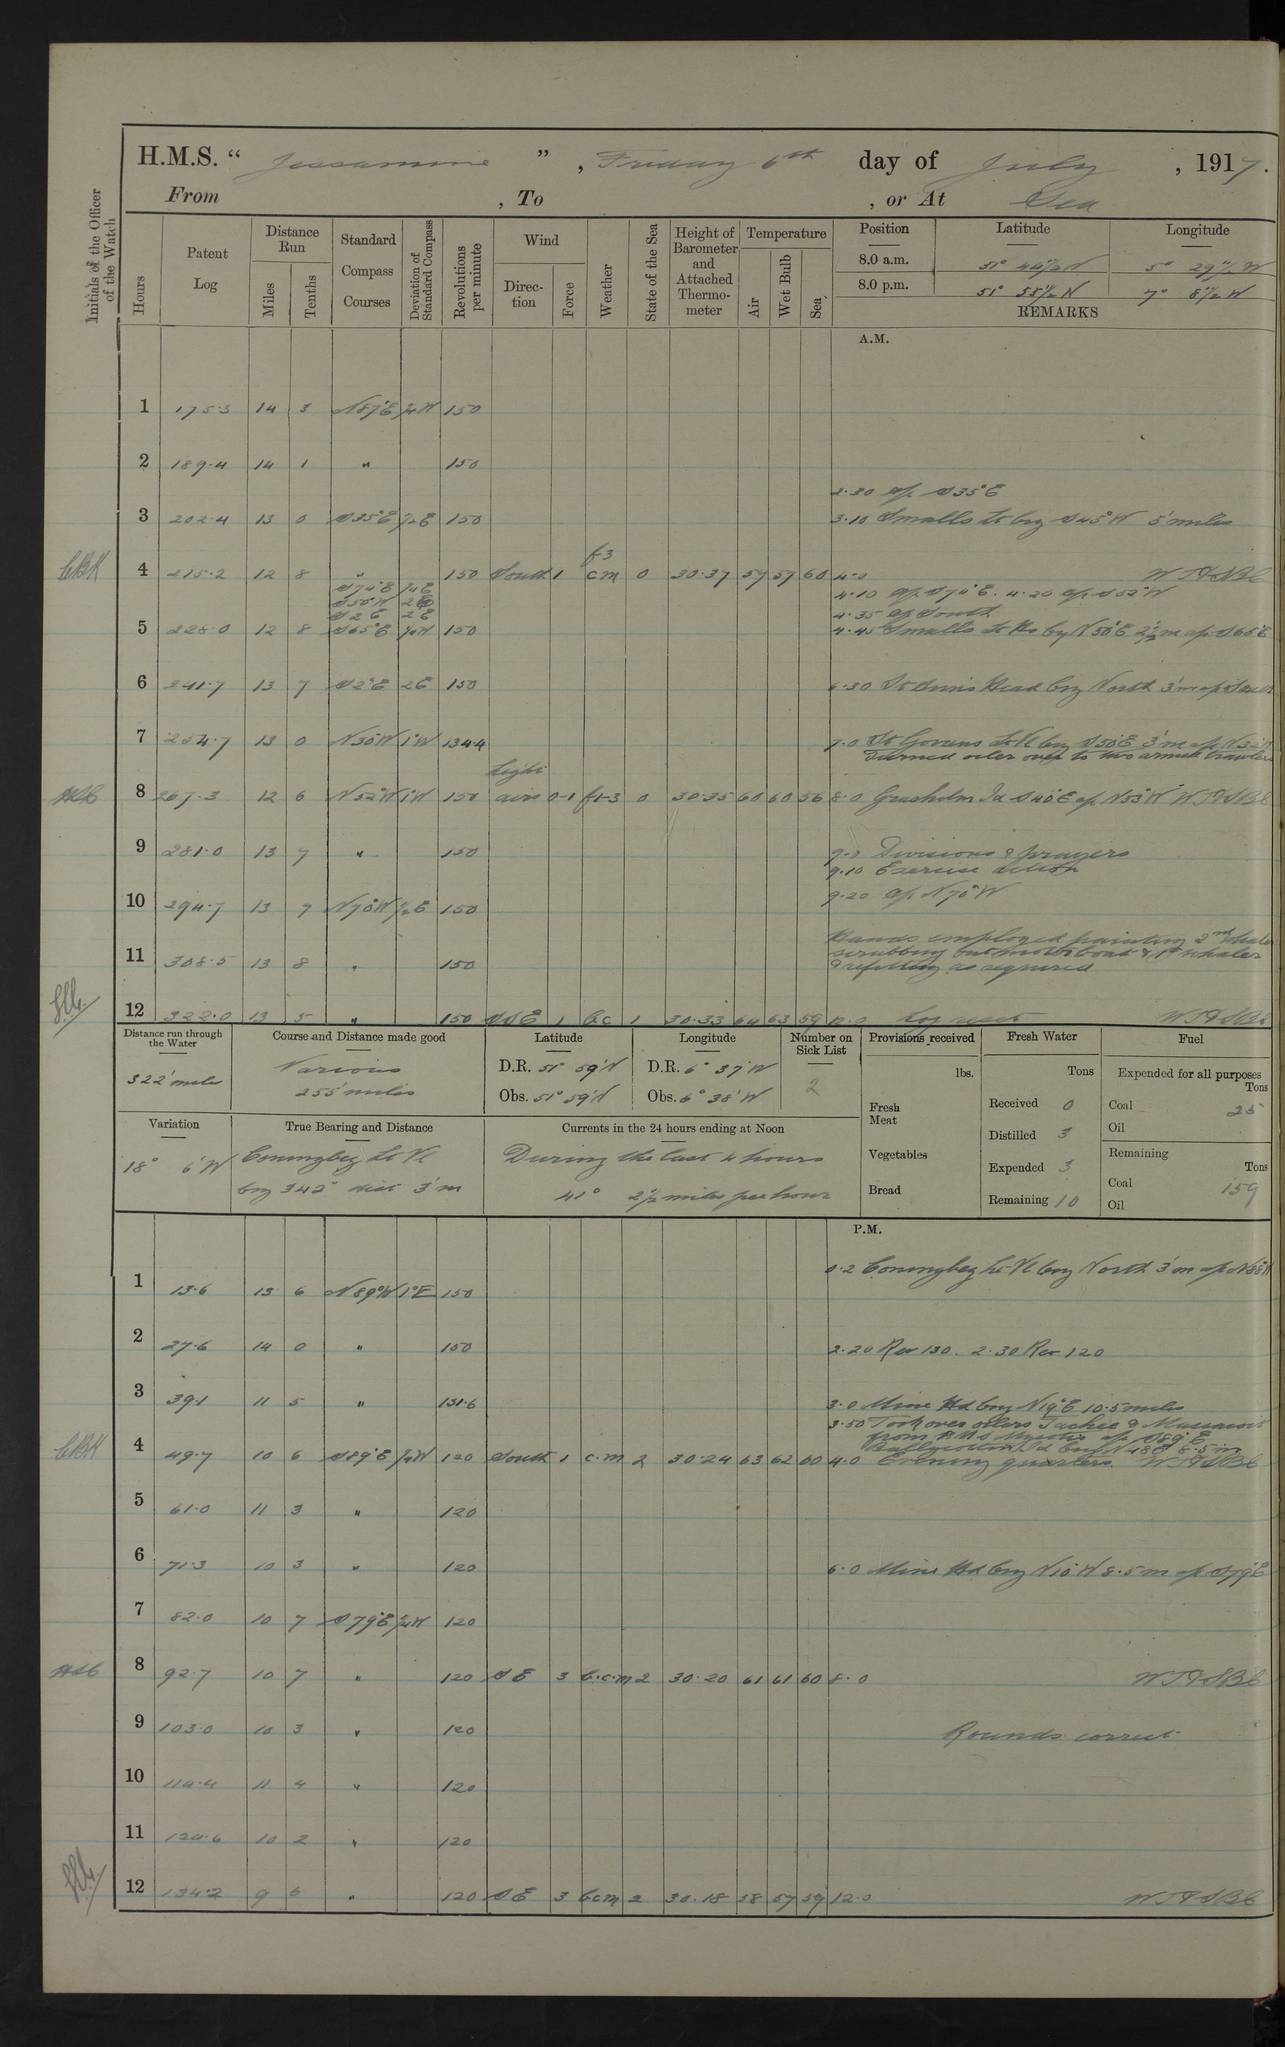 H.M.S. “ Jessamine ” , Friday 6th day of July , 1917.
From , To , or At Sea
Initials of the Officer of the Watch
Hours
Patent Log
Distance Run
Miles
Tenths
Standard Compass Courses
Deviation of Standard Compass
Revolutions per minute
Wind
Direction
Force
Weather
State of the Sea
Height of Barometer and Attached Thermometer
Temperature
Air
Wet Bulb
Sea
Position Latitude Longitude
8.0 a.m. 51° 44½'N 5° 29½'W
8.0 p.m. 51° 55½'N 7° 8½'W
REMARKS
A.M.
1 175.3 14 3 N87°E ¾W 150
2 189.4 14 1 " 150
2.30 a/c S35°E
3 202.4 13 0 S35°E ½E 150 3.10 Smalls Lt brg S45°W 5 miles
f-3
CBK 4 215.2 12 8 " 150 South 1 cm 0 30.37 59 59 60 4.0
S74°E ¼E 4.10 a/c S74°E. 4.20 a/c S52°W
S50°W
S2°E 2E 4.35 a/c South
5 228.0 12 8 S65°E ¼W 150 4.45 Smalls Lt Ho brg N50°E 2½m a/c S65°E
6 241.7 13 7 S2°E 2E 150 6.30 St Anns Head brg North 3'm a/c
7 254.7 13 0 N30°W 1°W 134.4 7.0 St Govens Lt Vl brg S50°E 3'm a/c
Turned oiler over to two armed trawlers
Light
8 267.3 12 6 N52°W 1°W 150 airs 0-1 f-3 0 30.35 60 60 56 8.0 Grasholm Id S40°E a/c N53°W
9 281.0 13 7 " 150 9.0 Divisions & prayers
9.10 Exercise action
9.20 a/c N70°W
10 294.7 13 7 N70°W ½E 150
Hands employed painting 2nd whaler
11 308.5 13 8 " 150 scrubbing out motor boat & 1st whaler
& refitting as required
12 322.0 13 5 " 150 SSE 1 bc 1 30.33 64 63 59 12.0 Log reset
Distance run through the Water
322' miles
Course and Distance made good
Various
255 miles
Latitude
D.R. 51° 59'N
Obs. 51° 59'N
Longitude
D.R. 6° 37'W
Obs. 6° 38'W
Number on Sick List
2
Provisions received
lbs.
Fresh Meat
Vegetables
Bread
Fresh Water
Tons
Received 0
Distilled 3
Expended 3
Remaining 10
Fuel
Expended for all purposes
Tons
Coal 25
Oil
Remaining
Tons
Coal 159
Oil
Variation
18° 6'W
True Bearing and Distance
Coningbeg Lt Vl
brg 342° dist 3'm
Currents in the 24 hours ending at Noon
During the last 4 hours
41° 2½ miles per hour
P.M.
0.2 Coningbeg Lt Vl brg North 3'm a/c
1 13.6 13 6 N89°W 1°E 150
2 27.6 14 0 " 150 2.20 Rev 130. 2.30 Rev 120
3 39.1 11 5 " 131.6 3.0 Mine Hd brg N19°E 10.5 miles
3.50 Took over oilers
from H.M.S Myosotis a/c S89°E
Ballycotton Id brg N48E 8.5 m
CBK 4 49.7 10 6 S89°E ¼W 120 South 1 c.m 2 30.24 63 62 60 4.0 Evening quarters.
5 61.0 11 3 " 120
6 71.3 10 3 " 120 6.0 Mine Hd brg N10°W 8.5 m a/c S79°E
7 82.0 10 7 S79°E ¾W 120
8 92.7 10 7 " 120 SE 3 b.c.m 2 30.20 61 61 60 8.0
9 103.0 10 3 " 120 Rounds correct
10 114.4 11 4 " 120
11 124.6 10 2 " 120
12 134.2 9 6 " 120 SE 3 bcm 2 30.18 58 57 59 12.0